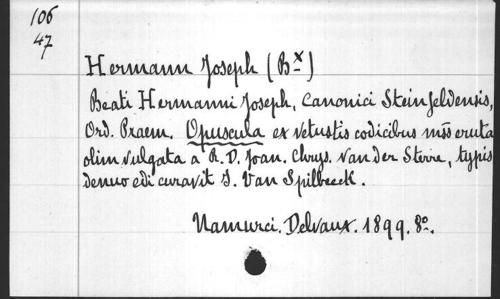 106
47
Hermann Joseph (Bx)
Beati Hermanni Joseph, canonici Steinfeldensis,
Ord. Praem. Opuscula ex vetustis codicibus mss eruta
olim vulgata a R. D. Joan. Chrys. Van der Sterre, typis
denuo edi curavit I. Van Spilbeeck.
Namurci. Delvaux. 1899. 8o.